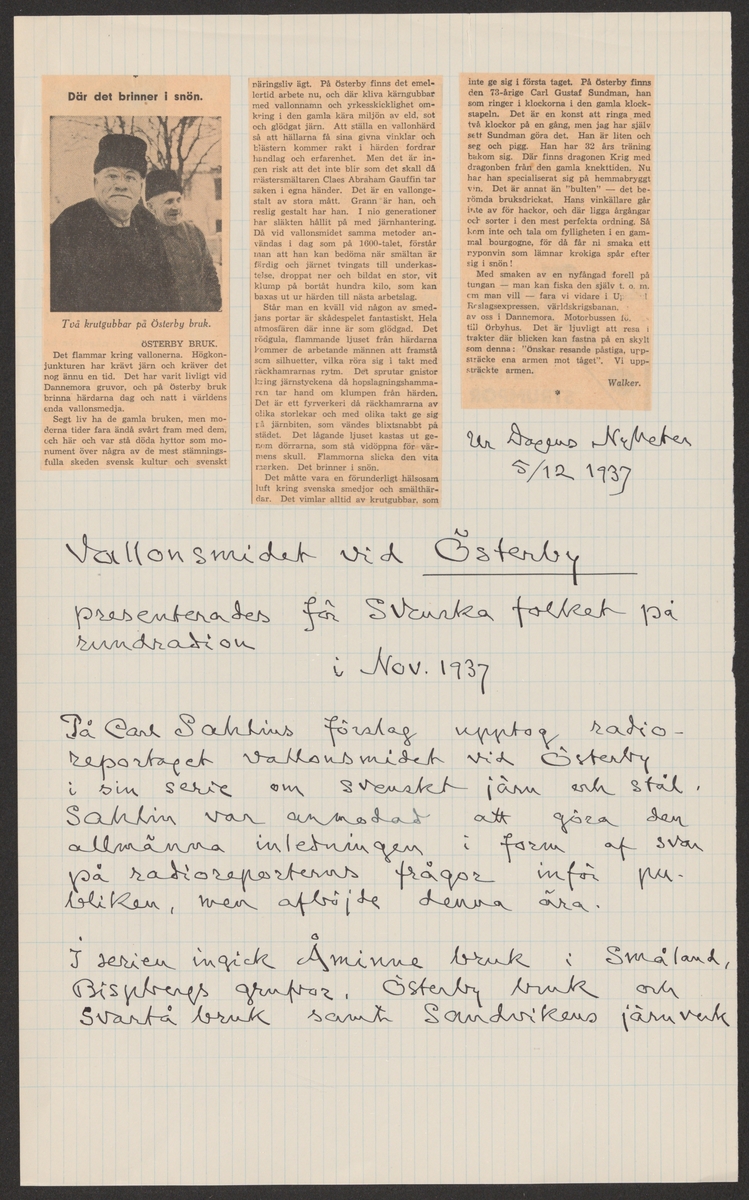 Där det brinner i snön.
Två krutgubbar på Österby bruk.
ÖSTERBY BRUK.
Det flammar kring vallonerna. Högkon-
junkturen har krävt järn och kräver det
nog ännu en tid. Det har varit livligt vid
Dannemora gruvor, och på Österby bruk
brinna härdarna dag och natt i världens
enda vallonsmedja.
Segt liv ha de gamla bruken, men mo-
derna tider fara ändå svårt fram med dem,
och här och var stå döda hyttor som mo-
nument över några av de mest stämnings-
fulla skeden svensk kultur och svenskt
näringsliv ägt. På Österby finns det emel-
lertid arbete nu, och där kliva kärngubbar
med vallonnamn och yrkesskicklighet om-
kring i den gamla kära miljön av eld, sot
och glödgat järn. Att ställa en vallonhärd
så att hällarna få sina givna vinklar och
blästern kommer rakt i härden fordrar
handlag och erfarenhet. Men det är in-
gen risk att det inte blir som det skall då
mästersmältaren Claes Abraham Gauffin tar
saken i egna händer. Det är en vallonge-
stalt av stora mått. Grann är han, och
reslig gestalt har han. I nio generationer
har släkten hållit på med järnhantering.
Då vid vallonsmidet samma metoder an-
vändas i dag som på 1600-talet, förstår
man att han kan bedöma när smältan är
färdig och järnet tvingats till underkas-
telse, droppat ner och bildat en stor, vit
klump på bortåt hundra kilo, som kan
baxas ut ur härden till nästa arbetslag.
Står man en kväll vid någon av smed-
jans portar är skådespelet fantastiskt. Hela
atmosfären där inne är som glödgad. Det
rödgula, flammande ljuset från härdarna
kommer de arbetande männen att framstå
som silhuetter, vilka röra sig i takt med
räckhamrarnas rytm. Det sprutar gnistor
kring järnstyckena då hopslagningshamma-
ren tar hand om klumpen från härden.
Det är ett fyrverkeri då räckhamrarna av
olika storlekar och med olika takt ge sig
på järnbiten, som vändes blixtsnabbt på
städet. Det lågande ljuset kastas ut ge-
nom dörrarna, som stå vidöppna för vär-
mens skull. Flammorna slicka den vita
marken. Det brinner i snön.
Det måtte vara en förunderligt hälsosam
luft kring svenska smedjor och smälthär-
dar. Det vimlar alltid av krutgubbar, som
inte ge sig i första taget. På Österby finns
den 73-årige Carl Gustaf Sundman, han
som ringer i klockorna i den gamla klock-
stapeln. Det är en konst att ringa med
två klockor på en gång, men jag har själv
sett Sundman göra det. Han är liten och
seg och pigg. Han har 32 års träning
bakom sig. Där finns dragonen Krig med
dragonben från den gamla knekttiden. Nu
har han specialiserat sig på hemmabryggt
vin. Det är annat än "bulten" — det be-
römda bruksdrickat. Hans vinkällare går
inte av för hackor, och där ligga årgångar
och sorter i den mest perfekta ordning. Så
kom inte och tala om fylligheten i en gam-
mal bourgogne, för då får ni smaka ett
nyponvin som lämnar krokiga spår efter
sig i snön!
Med smaken av en nyfångad forell på
tungan — man kan fiska den själv t. o. m.
om man vill — fara vi vidare i
Roslagsexpressen. världskrigsbanan.
av oss i Dannemora. Motorbussen
till Örbyhus. Det är ljuvligt att resa i
trakter där blicken kan fastna på en skylt
som denna: "Önskar resande påstiga, upp-
sträcke ena armen mot tåget". Vi upp-
sträckte armen.
Walker.
Ur Dagens Nyheter
5/12 1937
Vallonsmidet vid Österby
presenterades för Svenska folket på
rundradion
i Nov. 1937
På Carl Sahlins förslag upptog radio-
reportaget vallonsmidet vid Österby
i sin serie om svenskt järn och stål.
Sahlin var anmodad att göra den
allmänna inledningen i form af svar
på radioreporterns frågor inför pu-
bliken, men afböjde denna ära.
I serien ingick Åminne bruk i Småland,
Bispbergs gruvor, Österby bruk och
Svartå bruk samt Sandvikens järnverk